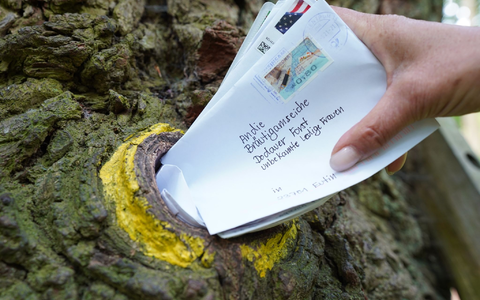 An die
Bräutigamseiche
Dodauer Forst
unbekannte ledige Frauen
in
Eutin